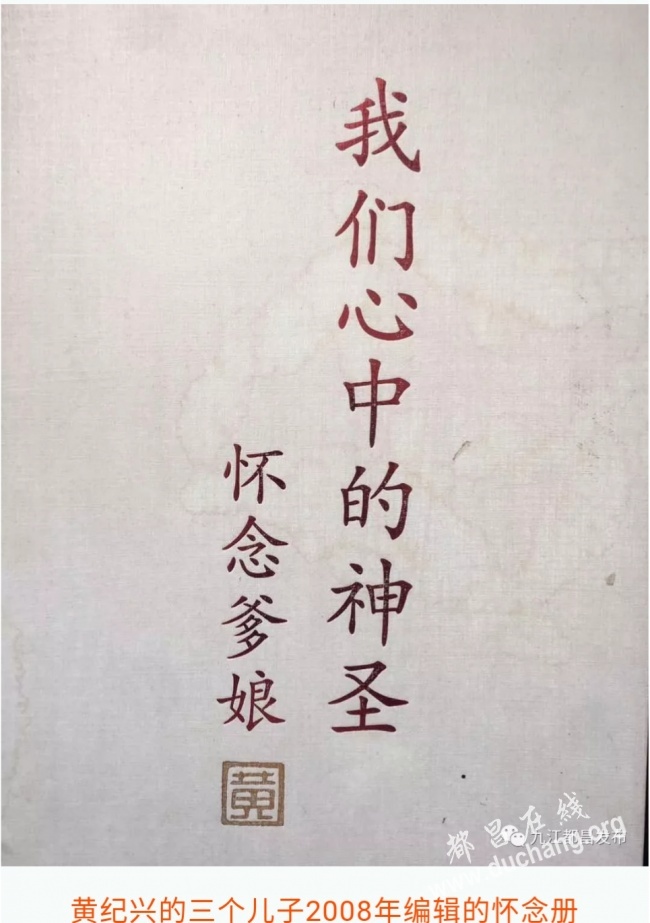 我们心中的神圣
怀念爹娘
黄
都昌在线
九江都昌发布
www.duchang.org
黄纪兴的三个儿子2008年编辑的怀念册